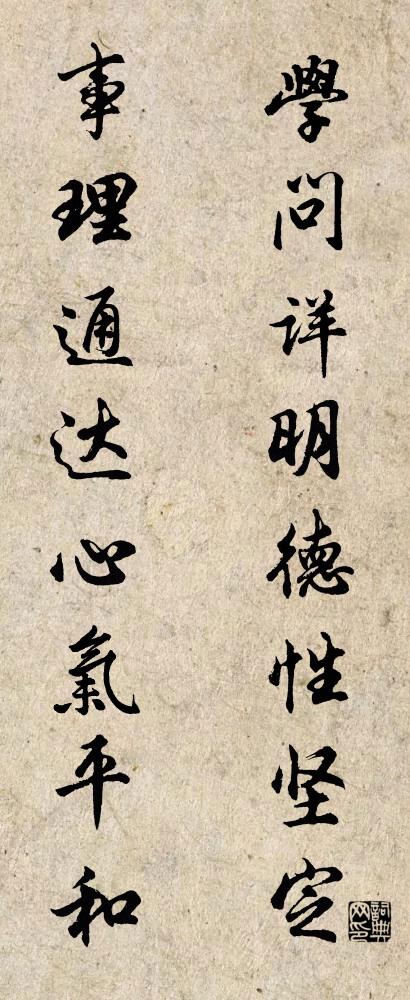 學问详明德性坚定
事理通达心氣平和
詞典网印